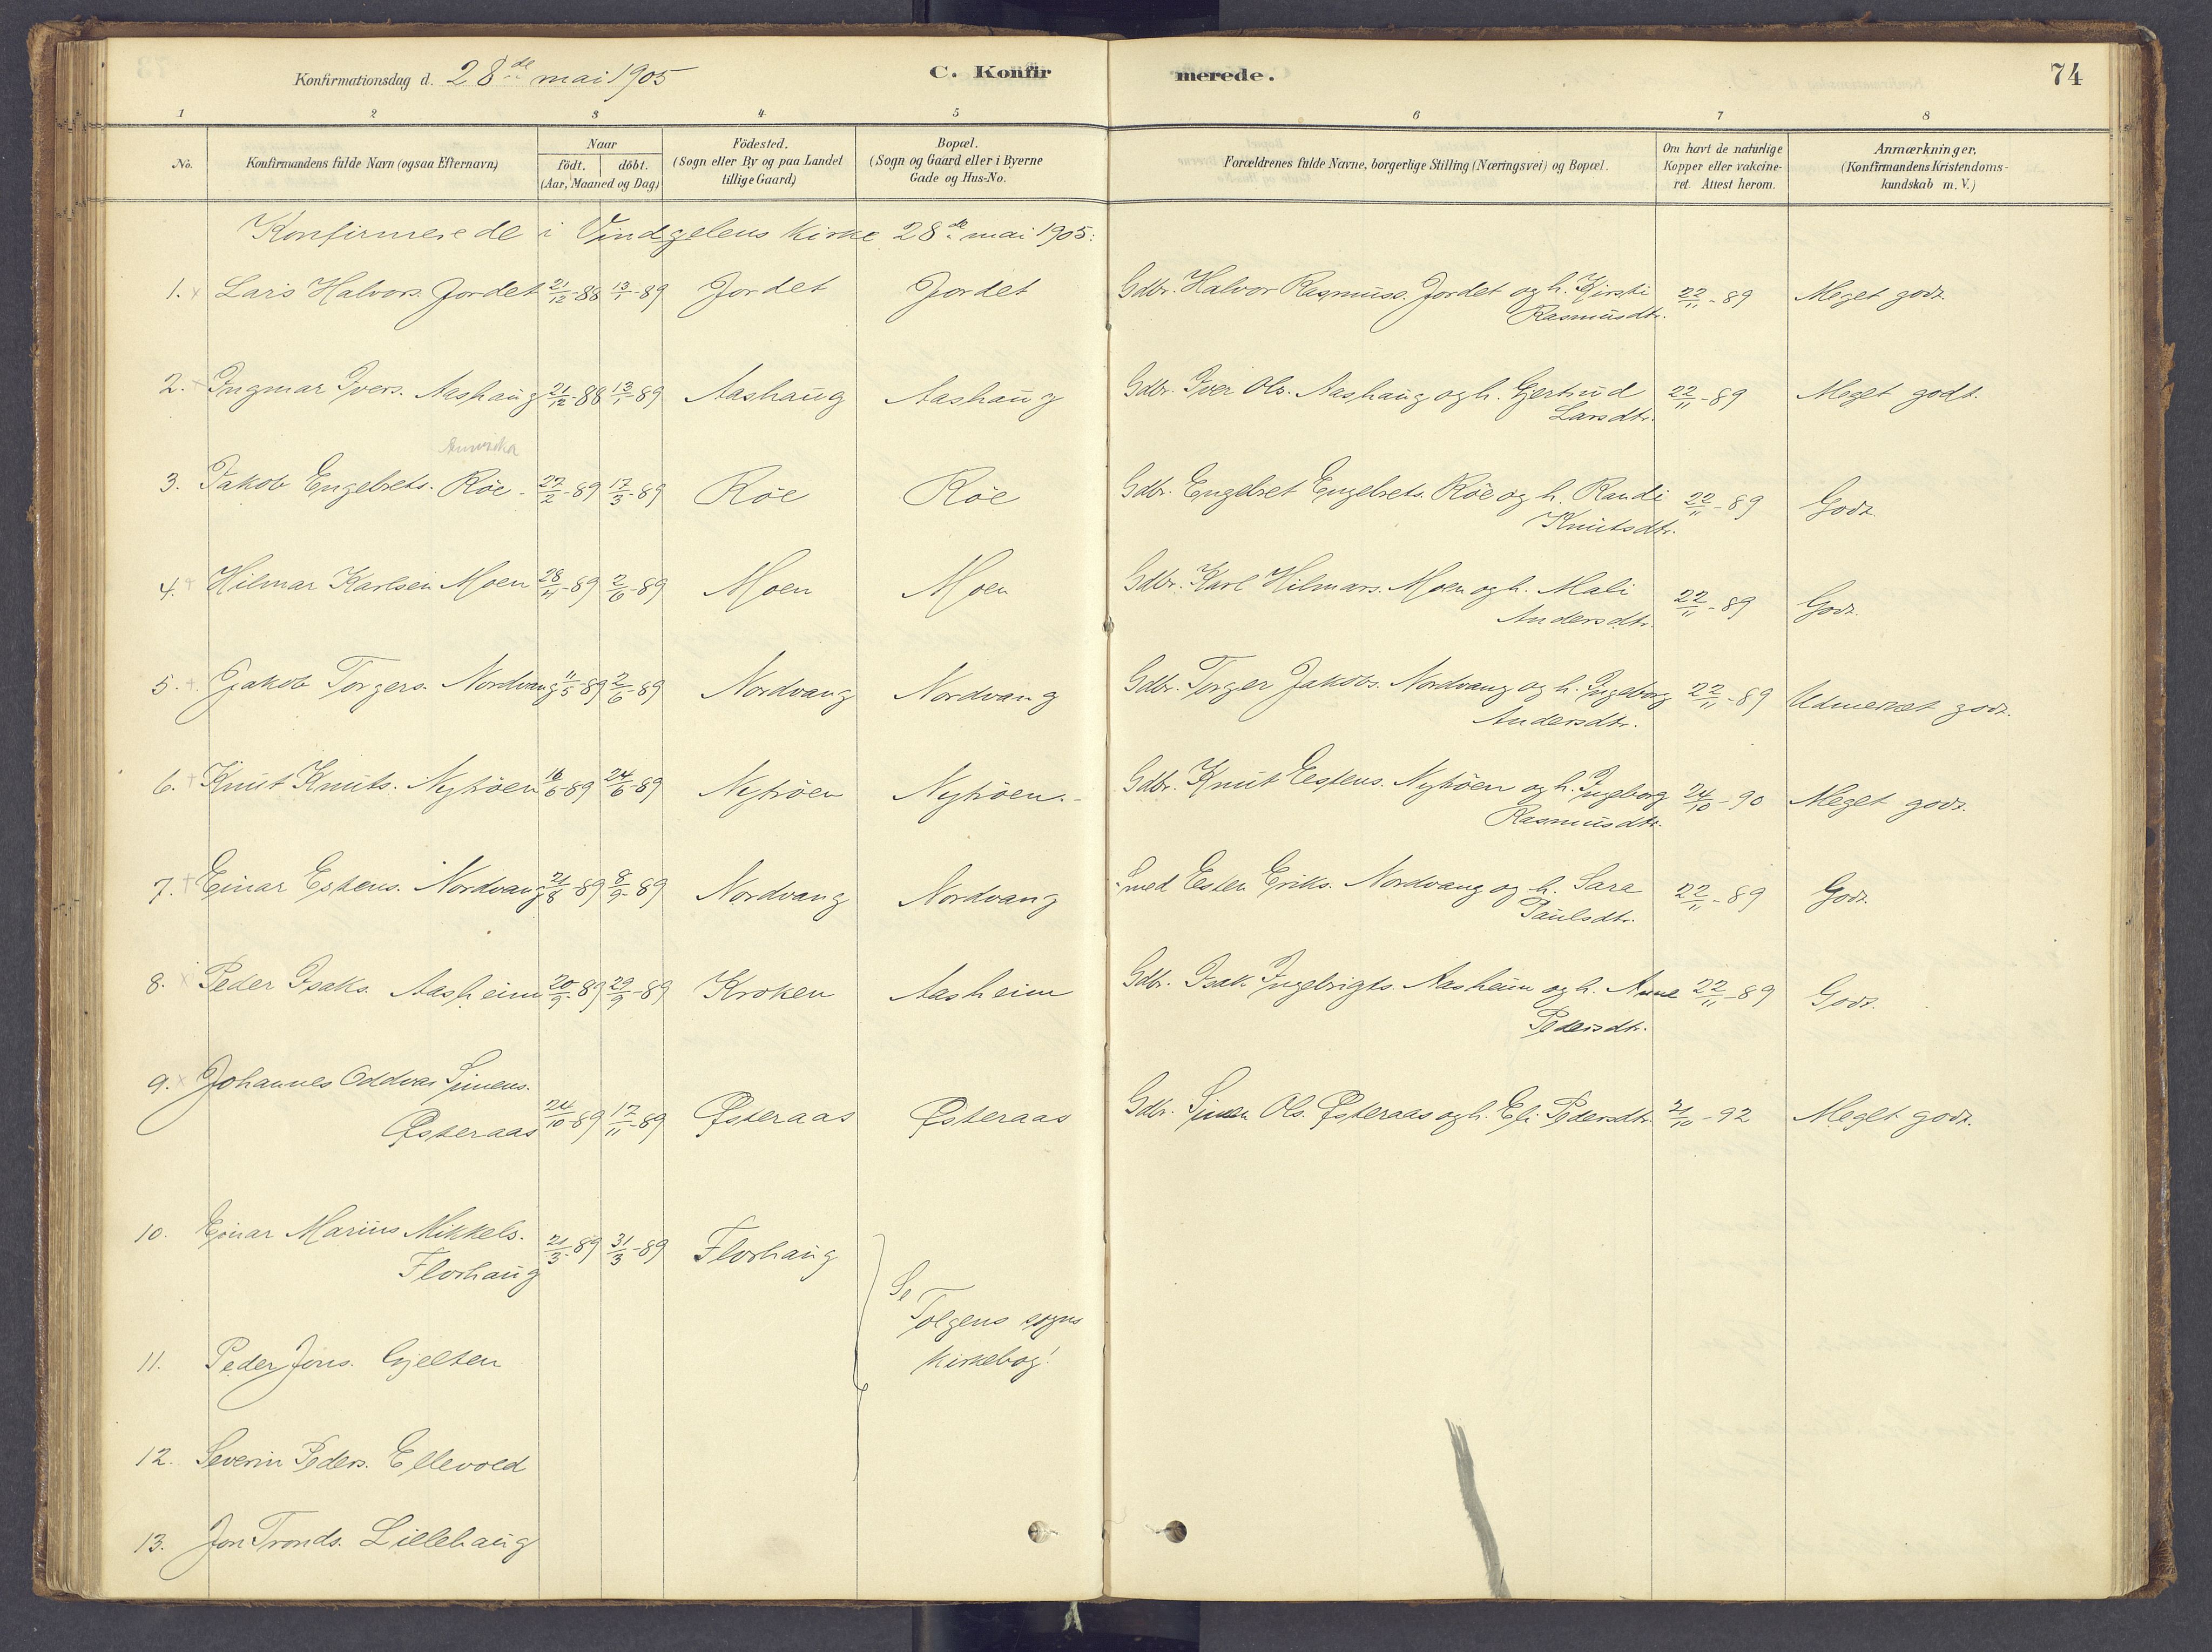 Konfirmationsdag d. 28de mai 1905
C. Konfirmerede.
74
1 2 3 4 5 6 7 8
No.
Konfirmandens fulde Navn (ogsaa Efternavn)
Naar
födt. döbt.
(Aar, Maaned og Dag)
Födested.
(Sogn eller By og paa Landet
tillige Gaard)
Bopæl.
(Sogn og Gaard eller i Byerne
Gade og Hus-No.
Forældrenes fulde Navne, borgerlige Stilling (Næringsvei) og Bopæl.
Om havt de naturlige
Kopper eller vakcine-
ret. Attest herom.
Anmærkninger.
(Konfirmandens Kristendoms-
kundskab m. V.)
Konfirmerede i Vindgelens kirke 28de mai 1905:
1. x Lars Halvors. Jordet 21/12-88 13/1-89 Jordet Jordet Gdbr. Halvor Rasmuss. Jordet og h. Kirsti 22/11-89 Meget godt.
Rasmusdtr.
2. Ingmar Ivers. Aashaug 21/12-88 13/1-89 Aashaug Aashaug Gdbr. Iver Ols. Aashaug og h. Gjertrud 22/11-89 Meget godt.
Larsdtr.
Amerika
3. Jakob Engebrets. Röe. 27/2-89 17/3-89 Röe Röe Gdbr. Engebret Engebrets. Röe og h. Randi 22/11-89 Godt.
Knutsdtr.
4. Hilmar Karlsen Moen 28/4-89 2/6-89 Moen Moen Gdbr. Karl Hilmars. Moen og h. Mali 22/11-89 Godt.
Andersdtr.
5. Jakob Torgers. Nordvang 11/5-89 2/6-89 Nordvang Nordvang Gdbr. Torger Jakobs. Nordvang og h. Ingeborg 22/11-89 Udmerket godt.
Andersdtr.
6. Knut Knuts. Nytröen 16/6-89 24/6-89 Nytröen Nytröen.- Gdbr. Knut Estens. Nytröen og h. Ingeborg 24/10-90 Meget godt.
Rasmusdtr.
7. Einar Estens. Nordvang 21/8-89 8/9-89 Nordvang Nordvang Smed Esten Eriks. Nordvang og h. Sara 22/11-89 Godt.
Paulsdtr.
8. x Peder Isaks. Aasheim 20/9-89 29/9-89 Kroken Aasheim Gdbr. Isak Ingebrigts. Aasheim og h. Anne 22/11-89 Godt.
Pedersdtr.
9. x Johannes Oddvar Simens.
Østeraas 24/10-89 17/11-89 Østeraas Østeraas Gdbr. Simen Ols. Østeraas og h. Eli Pedersdtr. 21/10-92 Meget godt.
10. Einar Marius Mikkels.
Florhaug 21/3-89 31/3-89 Florhaug
Se
Tolgens sogns
kirkebog!
11. Peder Jons. Gjelten
12. Severin Peders. Ellevold
13. Jon Tronds. Lillehaug